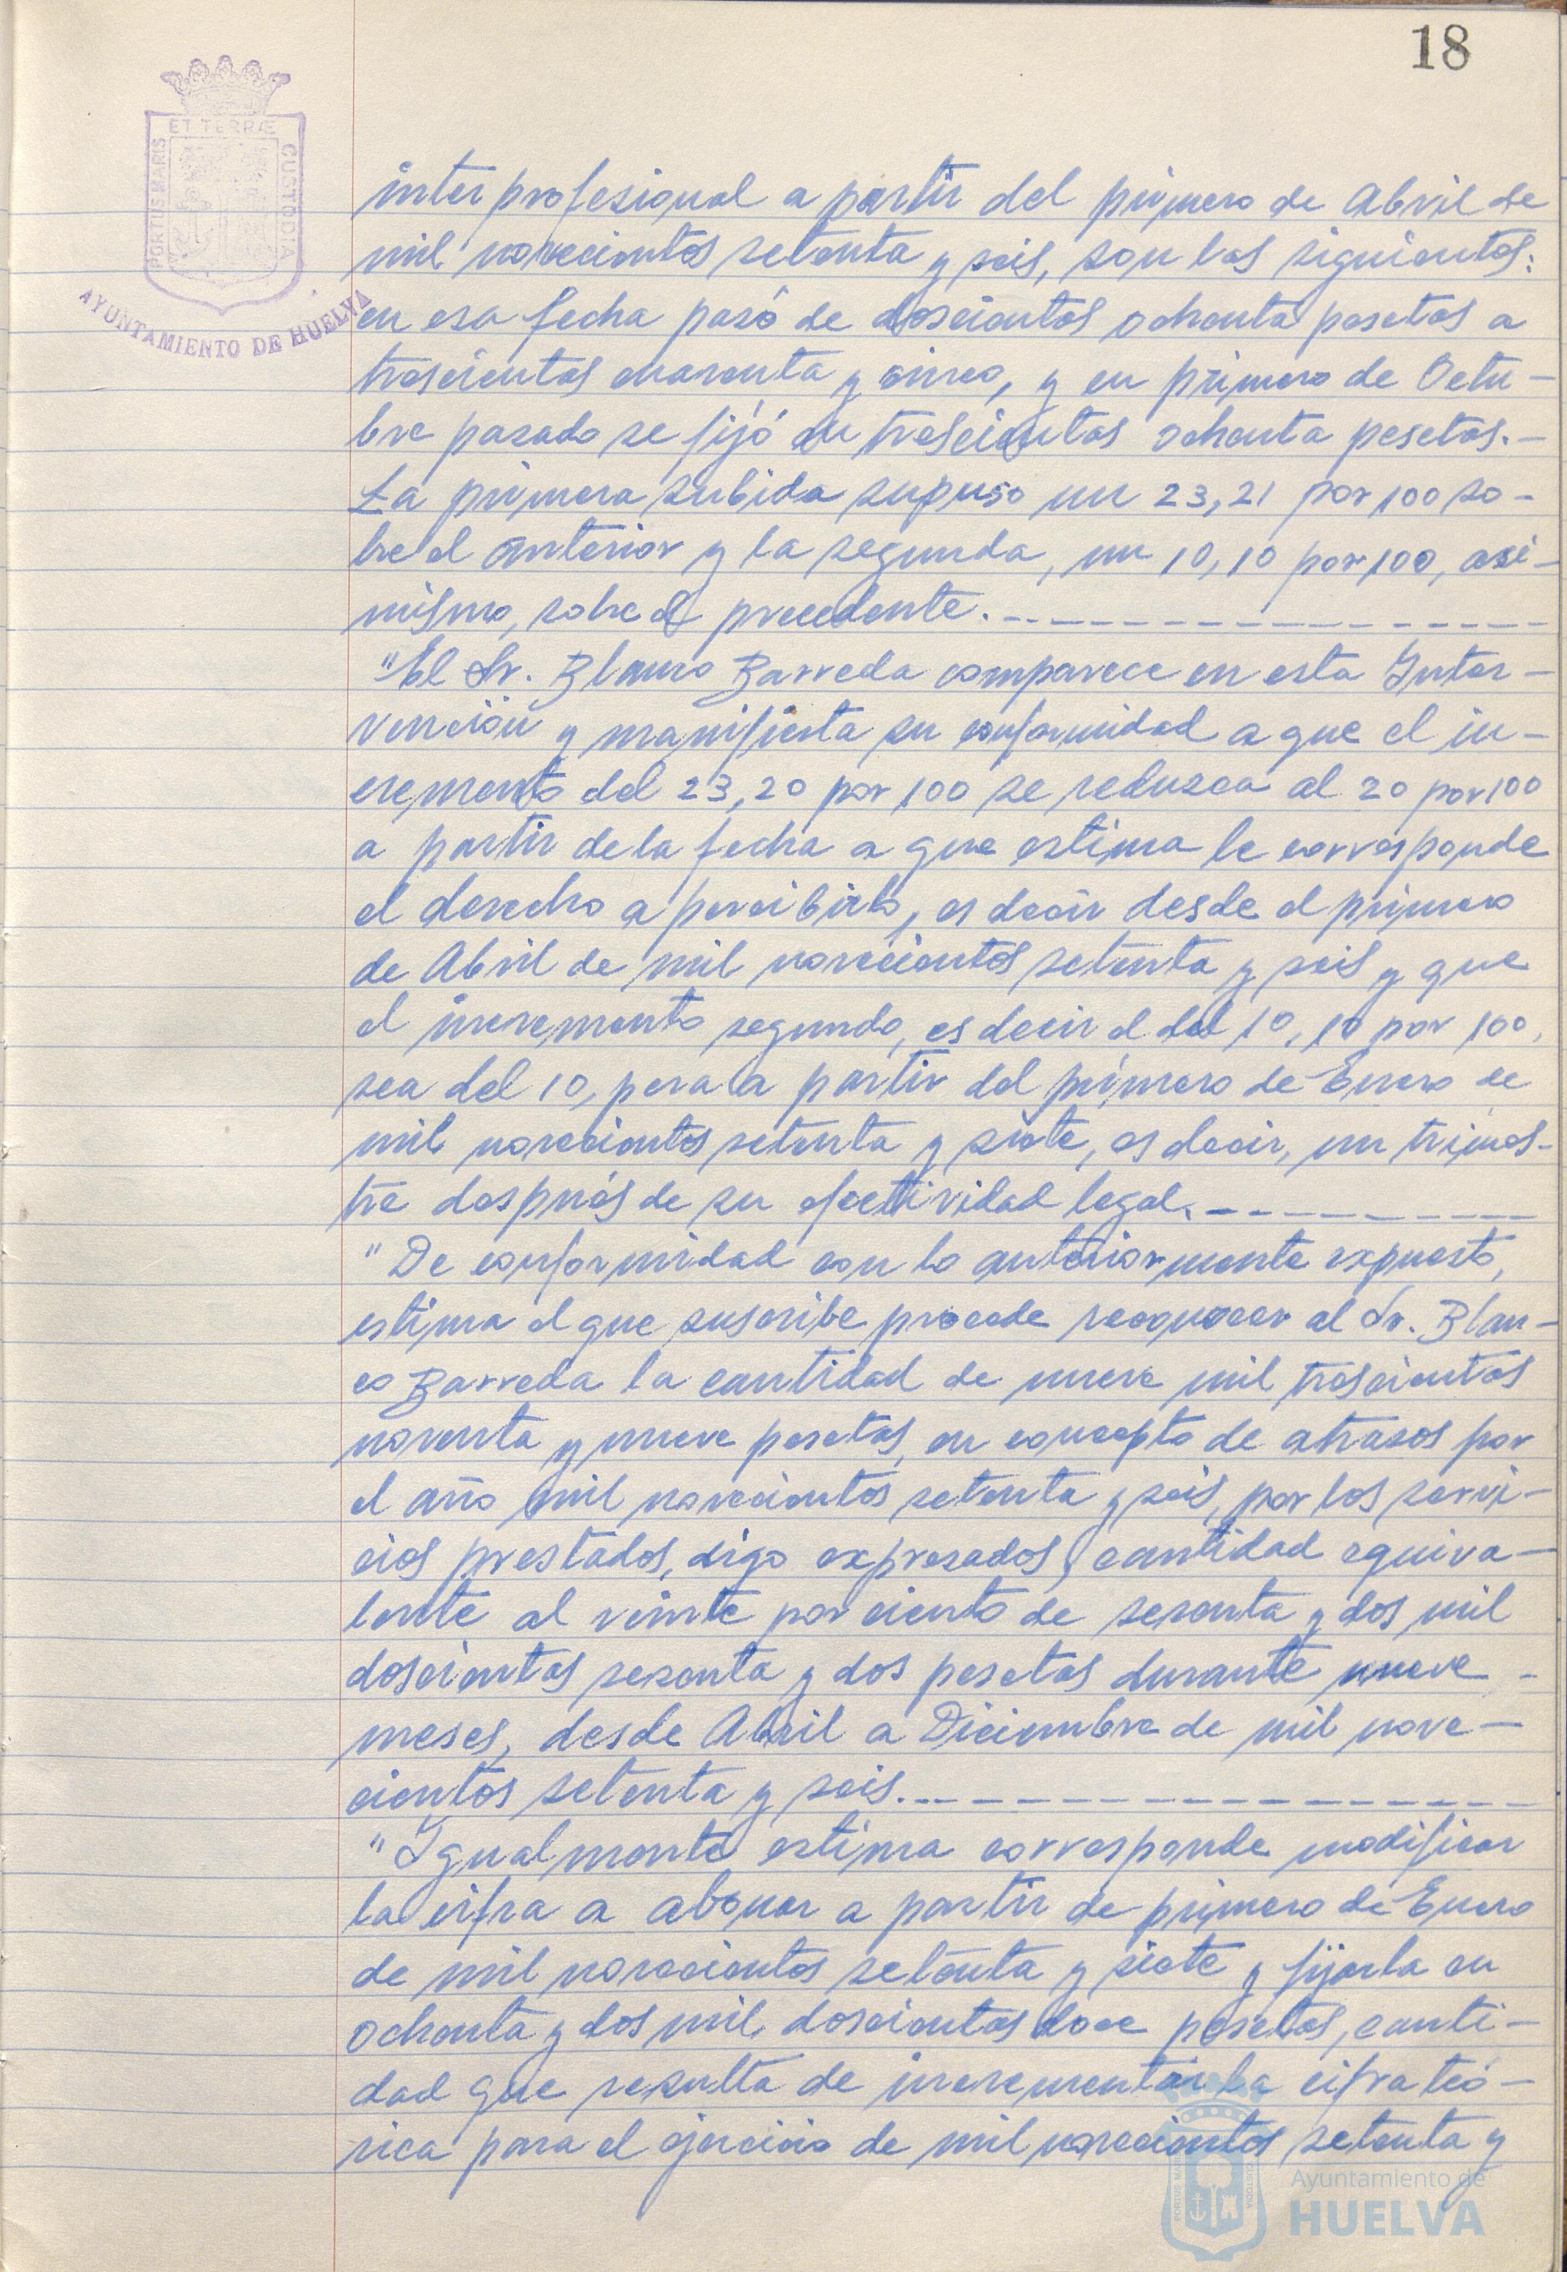 18
ET TERRÆ
PORTUS MARIS
CUSTODIA
AYUNTAMIENTO DE HUELVA
interprofesional a partir del primero de Abril de
mil novecientos setenta y seis, son las siguientes:
en esa fecha pasó de doscientas ochenta pesetas a
trescientas cuarenta y cinco, y en primero de Octu-
bre pasado se fijó en trescientas ochenta pesetas.-
La primera subida supuso un 23,21 por 100 so-
bre el anterior y la segunda, un 10,10 por 100, asi-
mismo, sobre el precedente.
"El Sr. Blanco Barreda comparece en esta Inter-
vención y manifiesta su conformidad a que el in-
cremento del 23,20 por 100 se reduzca al 20 por 100
a partir de la fecha a que estima le corresponde
el derecho a percibirlo, es decir desde el primero
de Abril de mil novecientos setenta y seis y que
el incremento segundo, es decir el del 10,10 por 100,
sea del 10, pera a partir del primero de Enero de
mil novecientos setenta y siete, es decir, un trimes-
tre después de su efectividad legal.
"De conformidad con lo anteriormente expuesto,
estima el que suscribe procede reconocer al Sr. Blan-
co Barreda la cantidad de nueve mil trescientas
noventa y nueve pesetas, en concepto de atrasos por
el año mil novecientos setenta y seis, por los servi-
cios prestados, digo expresados, cantidad equiva-
lente al veinte por ciento de sesenta y dos mil
doscientas sesenta y dos pesetas durante nueve -
meses, desde Abril a Diciembre de mil nove-
cientos setenta y seis.
"Igualmente estima corresponde modificar
la cifra a abonar a partir de primero de Enero
de mil novecientos setenta y siete y fijarla en
ochenta y dos mil, doscientas doce pesetas, canti-
dad que resulta de incrementar la cifra teó-
rica para el ejercicio de mil novecientos setenta y
Ayuntamiento de
HUELVA